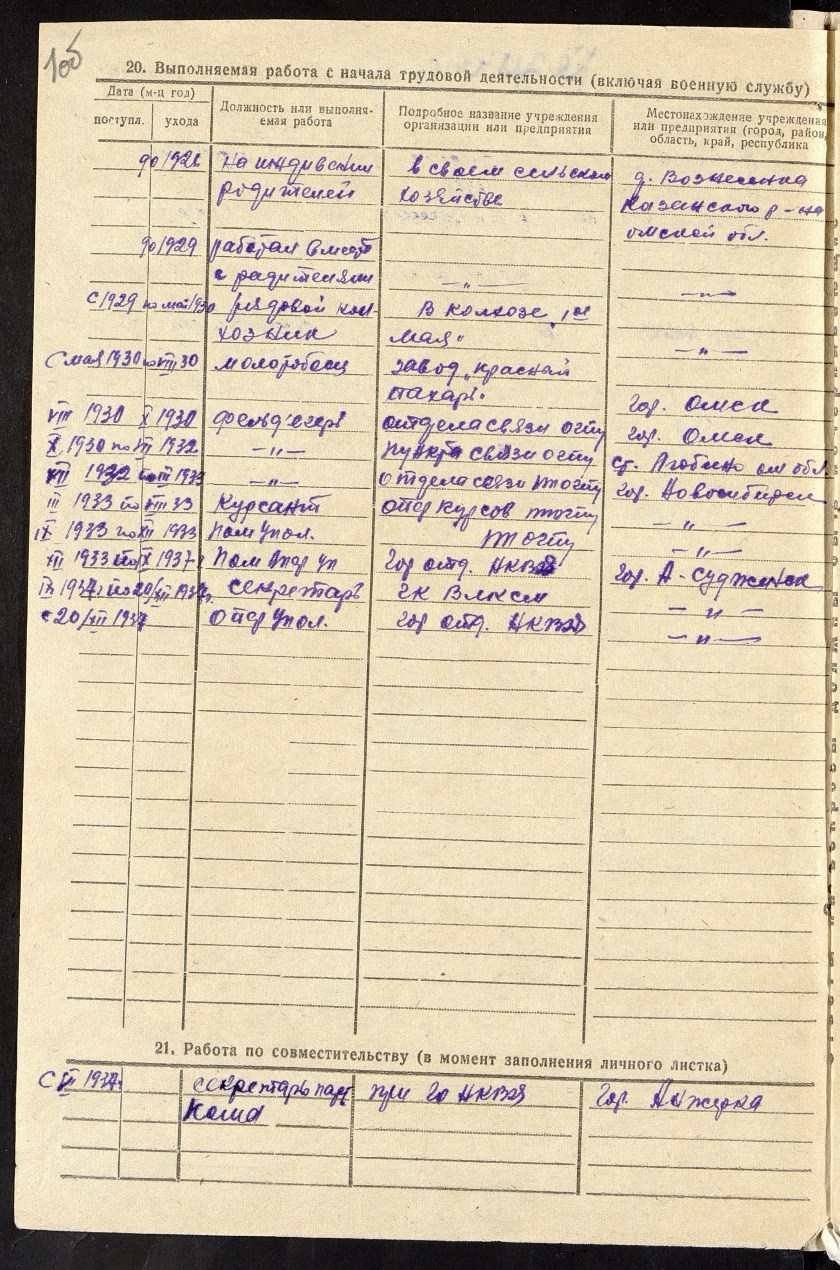 105
20. Выполняемая работа с начала трудовой деятельности (включая военную службу)
Дата (м-ц год)
поступл. ухода
Должность или выполня-
емая работа
Подробное название учреждения
организации или предприятия
Местонахождение учреждения
или предприятия (город, район,
область, край, республика
до 1921 на иждивении в своем сельском д. Вознесенка
родителей хозяйстве Казанского р-на
омской обл.
до 1929 работал вместе
с родителями —"— —"—
с 1929 по май 1930 рядовой кол- В колхозе „1ое
хозник мая" —"—
с мая 1930 по VIII 30 молотобоец завод „красный
пахарь" гор. Омск
VIII 1930 X 1930 фельд'егерь отдела связи огпу гор. Омск
X 1930 по VII 1932 —"— пункта связи огпу ст.
VII 1932 по III 1933 —"— отдела связи ппогпу гор. Новосибирск
III 1933 по VIII 33 Курсант опер курсов ппогпу —"—
IX 1933 по XII 1933 пом упол. ппогпу —"—
XII 1933 по IX 1937 г Пом Упер уп Гор отд. НКВД гор. А-Судженск
IX 1937 г по 20/XII 1937 г. секретарь ГК ВЛКСМ —"—
с 20/XII 1937 Опер упол. Гор отд. НКВД —"—
21. Работа по совместительству (в момент заполнения личного листка)
С 1937г. секретарь парт при Го НКВД гор. Анжерка
Кома